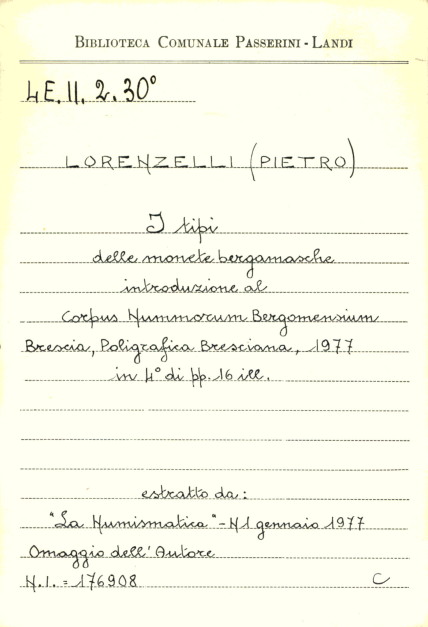 BIBLIOTECA COMUNALE PASSERINI - LANDI
4E.II.2.30°
LORENZELLI (PIETRO)
I tipi
delle monete bergamasche
introduzione al
Corpus Nummorum Bergomensium
Brescia, Poligrafica Bresciana, 1977
in 4° di pp. 16 ill.
estratto da:
"La Numismatica" - N1 gennaio 1977
Omaggio dell'Autore
N.I. = 176908 C